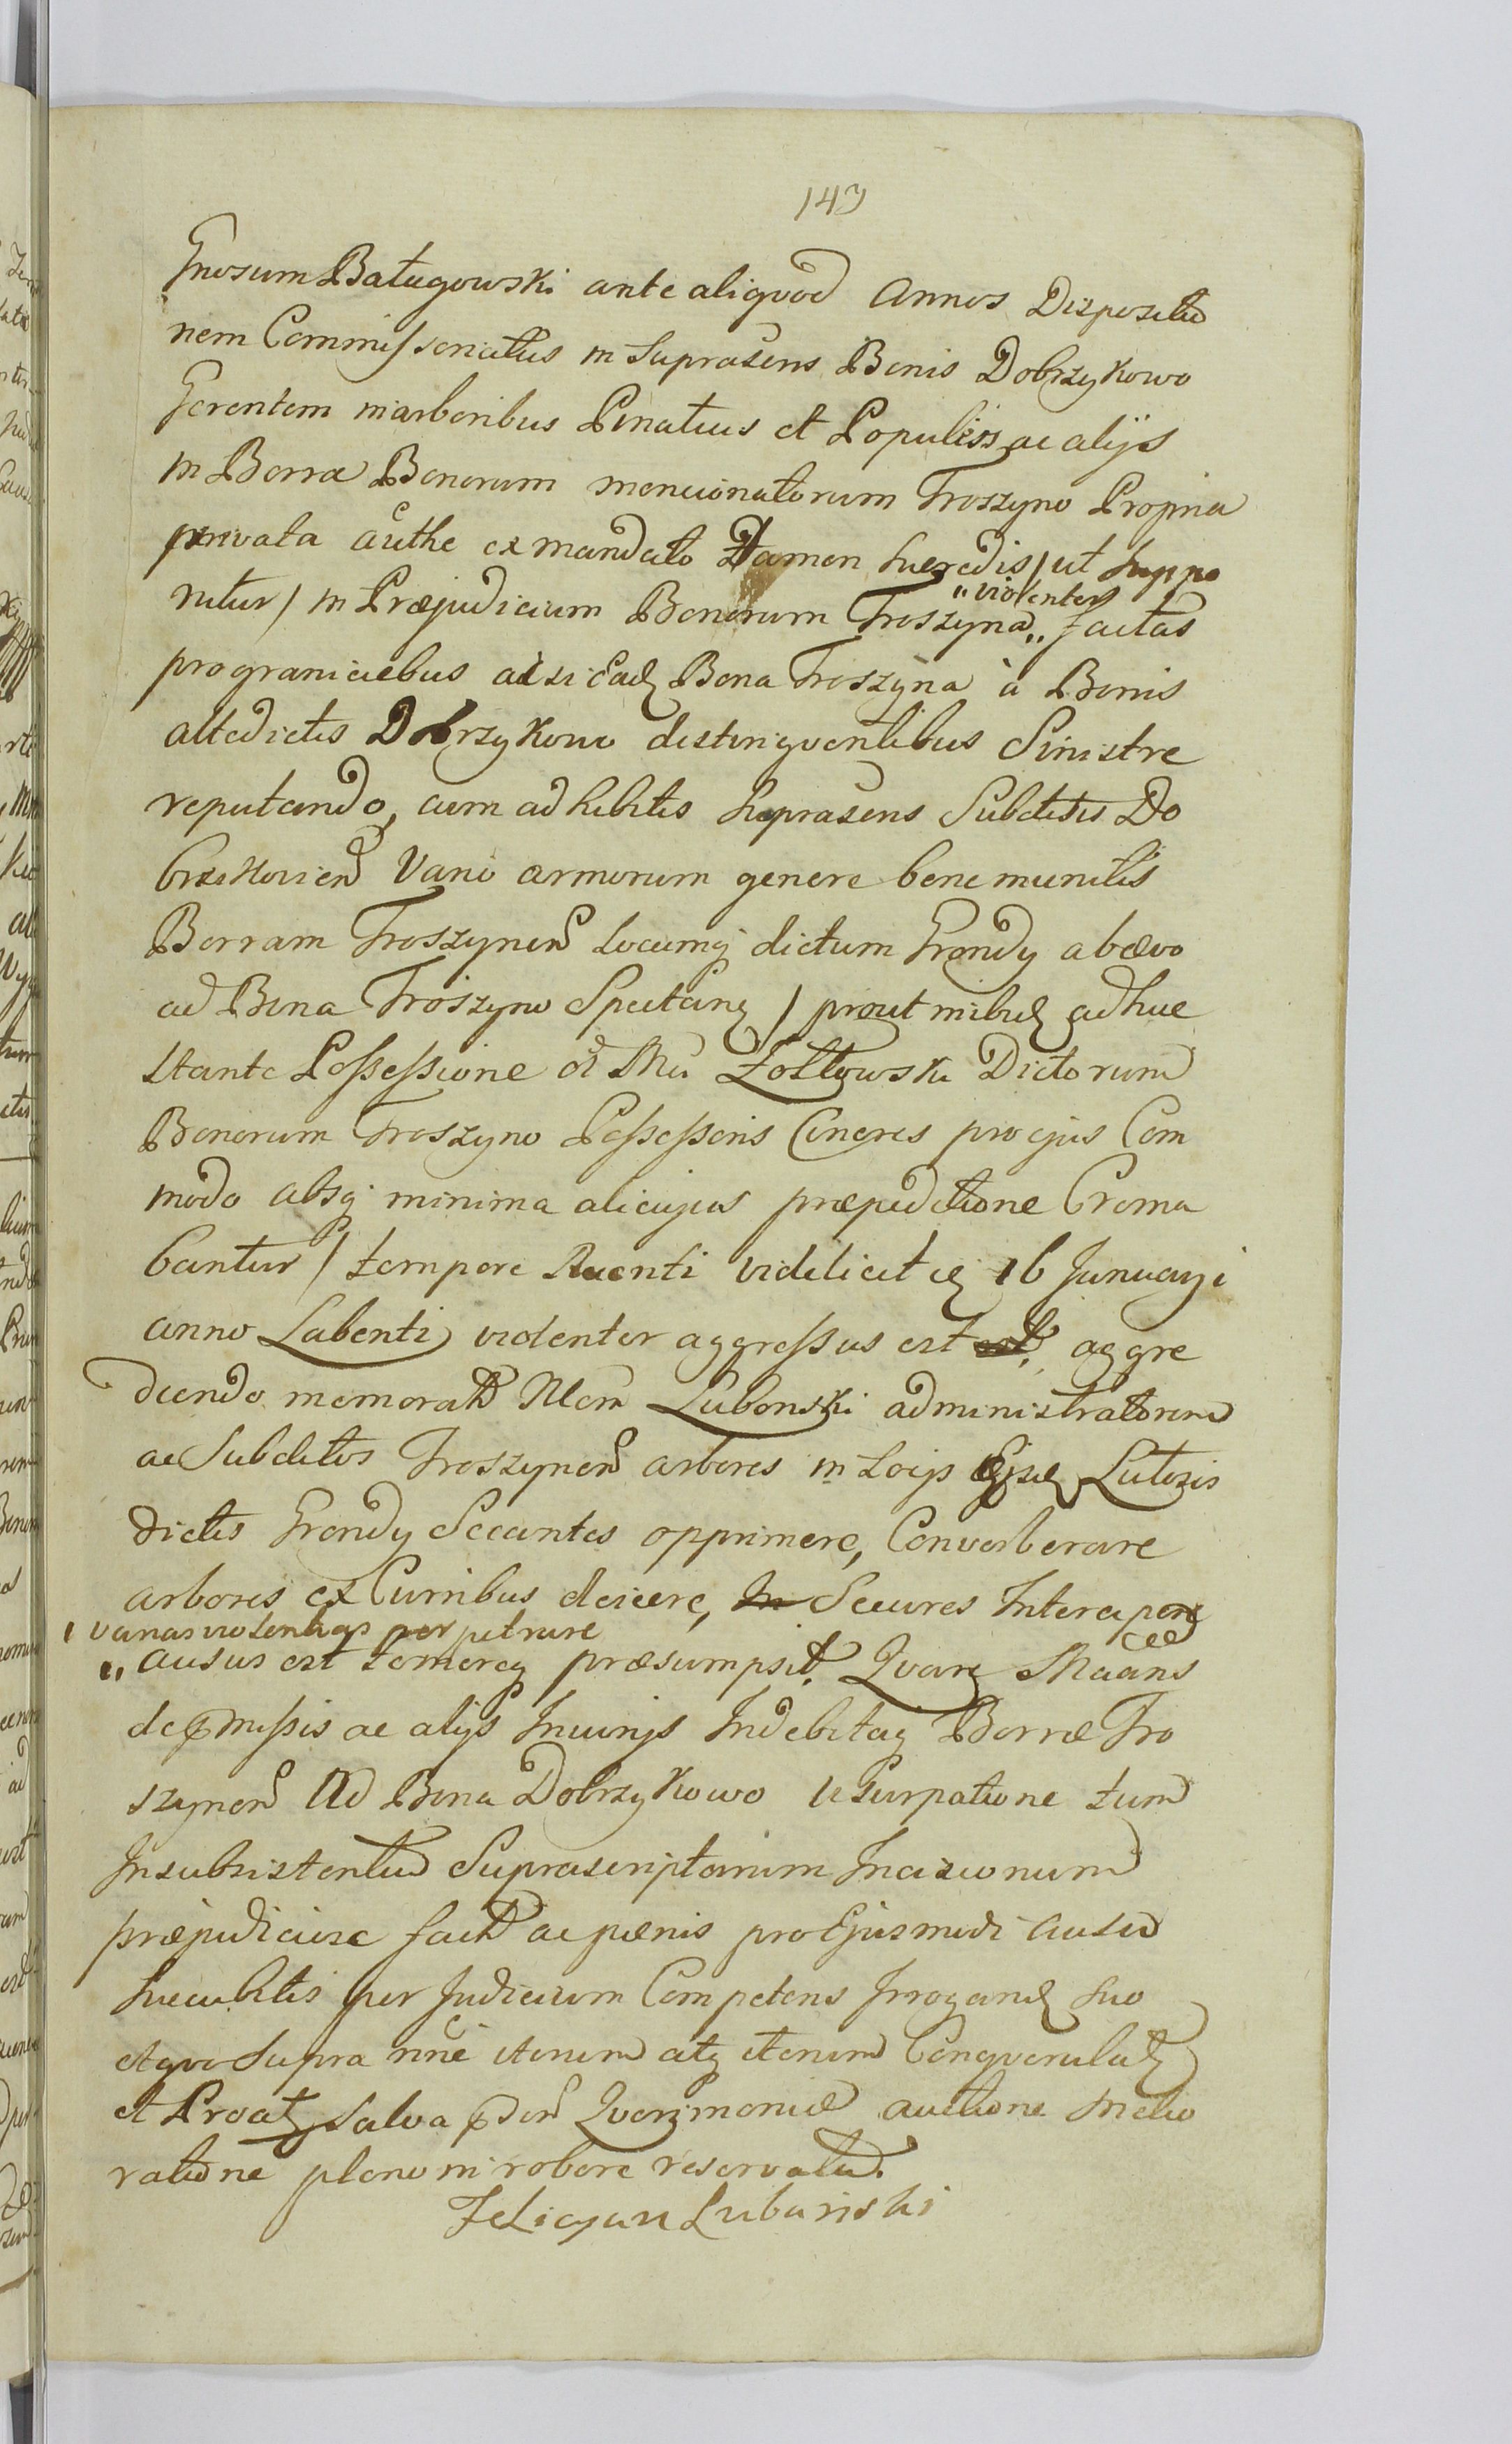 143
Gnosum Baługowski ante aliqvod Annos Dispositio
nem Commissoriatus in Suprascris Bonis Dobrzykowo
Gerentem in arboribus Pinatus et Populiss ac alijs
in Borra Bonorum mencionatorum Troszyno Propria
privata authe ex mandato tamen hueredis / ut Suppo
nitur / in Præjudicium Bonorum Troszyna „ factas
„ violenter
prograniciebus Bona Troszyna à Bonis
altedictis Dobrzykowo distingventibus Sinistre
reputando, cum adhibitis Suprascris Subditis Do
Vario armorum genere bene munitis
Borram Troszynen locumq dictum Grondy ab ævo
ad Bona Troszyno Spectanq / prout adhuc
stante Possessione Żołtowski Dictorum
Bonorum Troszyno Possessoris Cineres pro ejus Com
modo absq minima alicujus præpeditione Crema
bantur / tempore videlicet 16 Januarji
anno Labenti violenter aggressus est aggre
diendo memorat Lubonski administratorem
ac Subditos Troszynen arbores in Locis Lutosis
dictis Grondy Secantes opprimere, Converberare
arbores ex Curribus deicere, Secures Intercipere
/ varias violentias perpetrare
„ ausus est temereq præsumpsit. Qvare
ac alijs Injurijs Indebitaq Borræ Tro
szynen Ad Bona Dobrzykowo Usurpatione tum
Insubsistentia Suprascriptarum Incisionum
præjudiciose fact ac pænis pro Ejusmodi Ausu
Succubitis per Judicium Competens Irrogand suo
et qvo supra nne iterum atq iterum Conqverulat
et Proat salva Qverimoniæ auctione melio
ratione pleno in robore reservata.
Felicyan Lubański